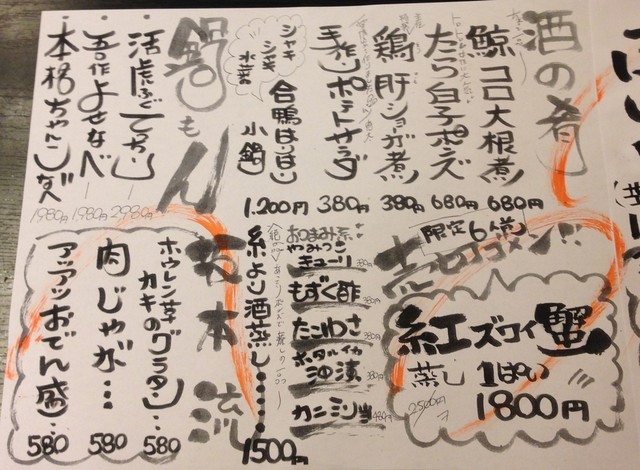 酒の肴
鯨コロ大根煮
680円
たら白子ポンズ
680円
鶏肝ショーガ煮
380円
手作りポテトサラダ
380円
シャキ
シャキ
水菜の
合鴨はりはり
小鍋
1.200円
鍋もん
活虎ふぐてっちり
2980円
吾作よせなべ
1980円
本格ちゃんこなべ
1980円
限定6人前
売切ゴメン!!
紅ズワイ蟹
蒸し 1ぱい
2500円
1800円
おつまみ系
やみつき
キューリ
もずく酢
たこわさ
ホタルイカ
沖漬
カニミソ
糸より酒蒸し
1500円
本流
ホウレン草
カキのグラタン
580
肉じゃが
580
アッアッおでん盛
580